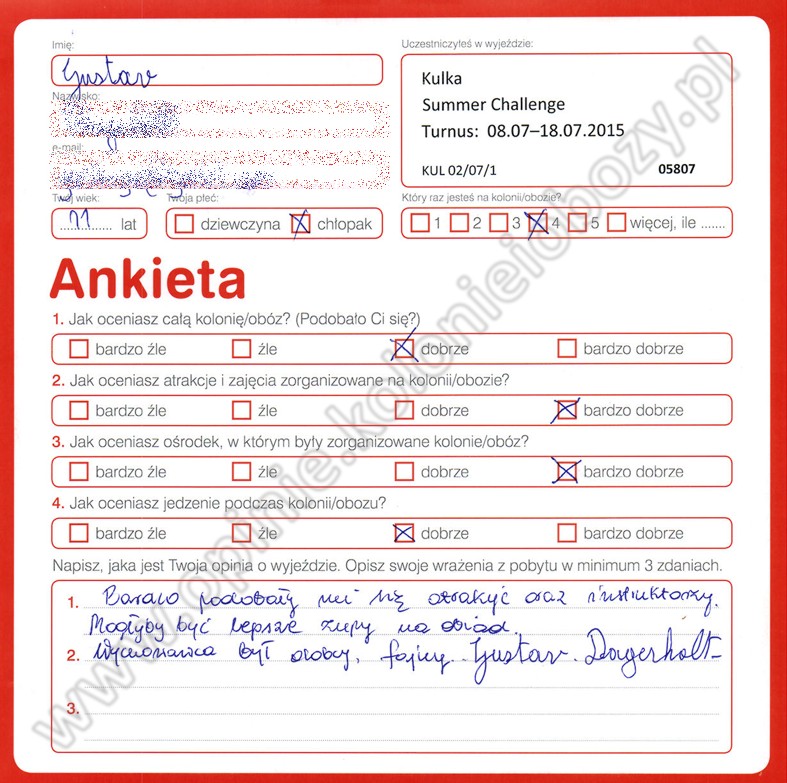 Imię:
Uczestniczyłeś w wyjeździe:
Gustav
Kulka
Summer Challenge
Turnus: 08.07–18.07.2015
KUL 02/07/1
05807
Nazwisko:
e-mail:
Twój wiek:
Twoja płeć:
Który raz jesteś na kolonii/obozie?
11 lat
dziewczyna
chłopak
1 2 3 4 5 więcej, ile .......
Ankieta
1. Jak oceniasz całą kolonię/obóz? (Podobało Ci się?)
bardzo źle źle dobrze bardzo dobrze
2. Jak oceniasz atrakcje i zajęcia zorganizowane na kolonii/obozie?
bardzo źle źle dobrze bardzo dobrze
3. Jak oceniasz ośrodek, w którym były zorganizowane kolonie/obóz?
bardzo źle źle dobrze bardzo dobrze
4. Jak oceniasz jedzenie podczas kolonii/obozu?
bardzo źle źle dobrze bardzo dobrze
Napisz, jaka jest Twoja opinia o wyjeździe. Opisz swoje wrażenia z pobytu w minimum 3 zdaniach.
1. podobały mi się oraz instruktorzy.
Mogłyby być lepsze zupy na obiad.
2. Wychowawca był fajny. Gustav Dagerholt
3.
www.opinie.kolonieiobozy.pl